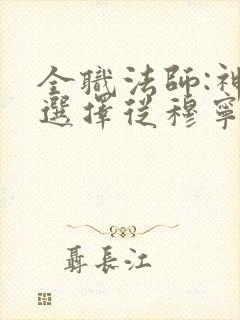 全職法師:神
選擇從穆寧
聶長江